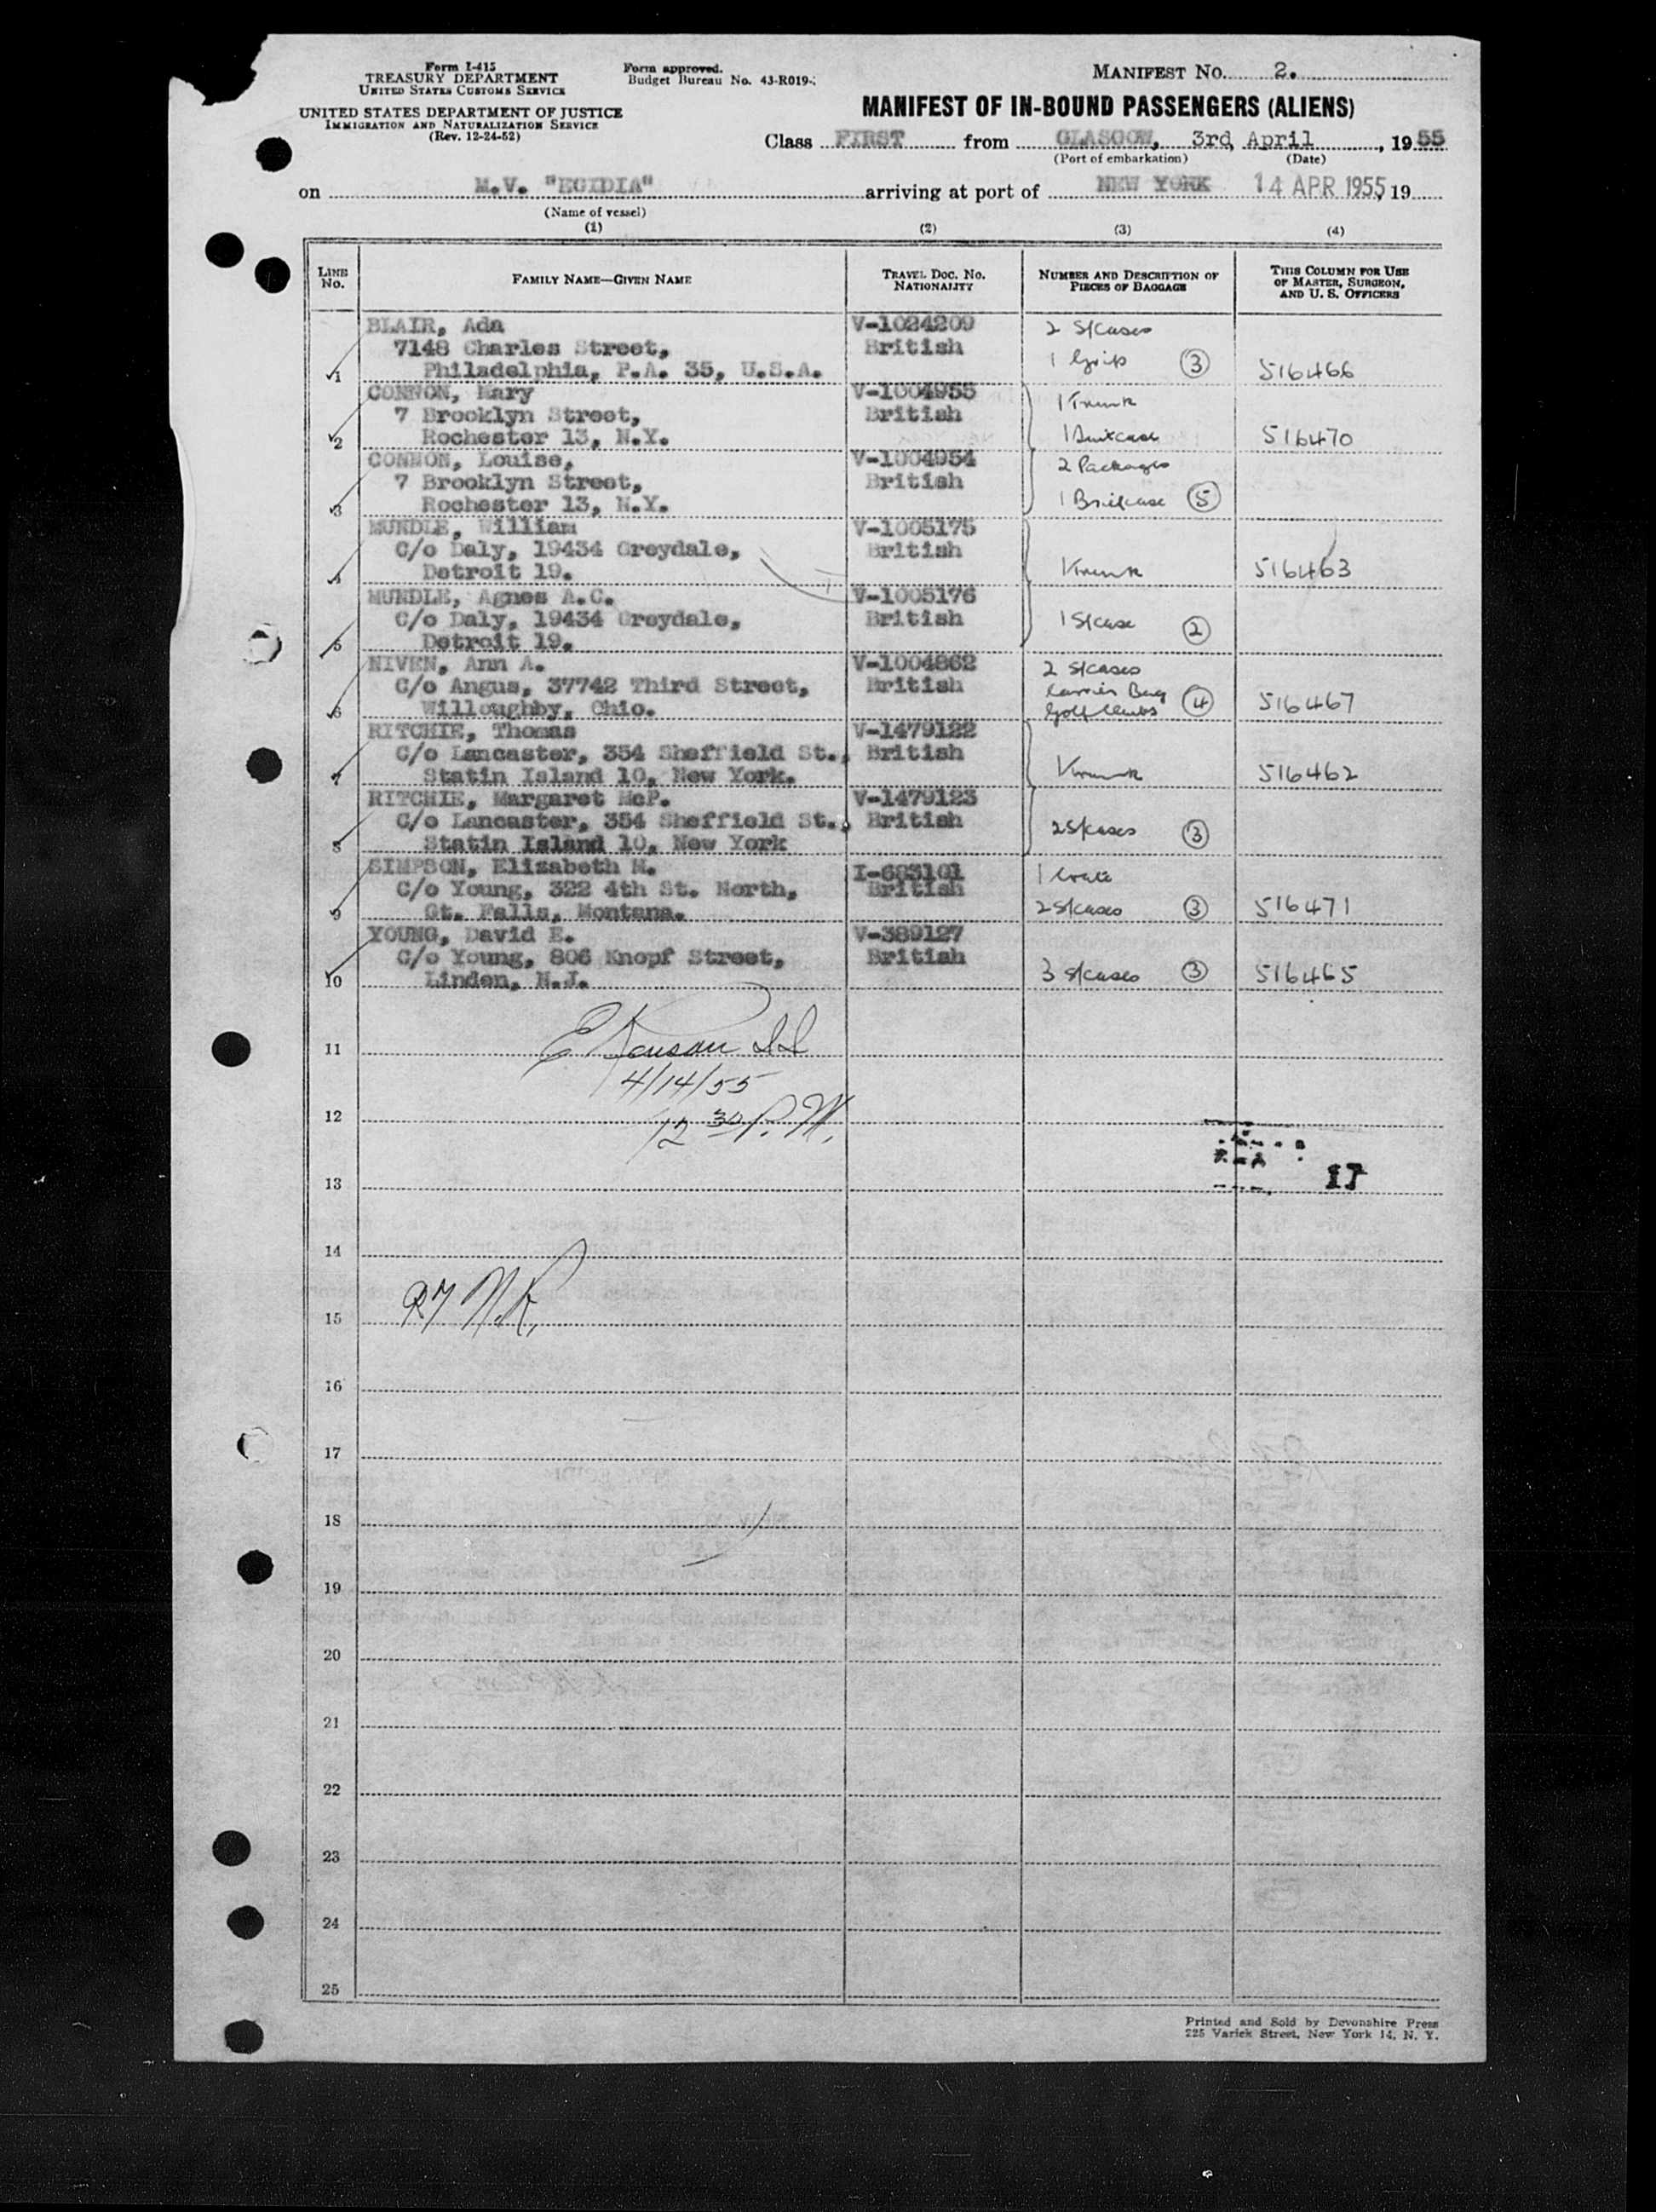 Form I-415
TREASURY DEPARTMENT
UNITED STATES CUSTOMS SERVICE
UNITED STATES DEPARTMENT OF JUSTICE
IMMIGRATION AND NATURALIZATION SERVICE
(Rev. 12-24-52)
Form approved.
Budget Bureau No. 43-R019-
MANIFEST NO. 2.
MANIFEST OF IN-BOUND PASSENGERS (ALIENS)
Class FIRST from GLASGOW, 3rd, April, 1955
(Port of embarkation) (Date)
on M.V. "EGIDIA" arriving at port of NEW YORK 14 APR 1955, 19
(Name of vessel)
(1) (2) (3) (4)
LINE No. FAMILY NAME—GIVEN NAME TRAVEL DOC. NO. NATIONALITY NUMBER AND DESCRIPTION OF PIECES OF BAGGAGE THIS COLUMN FOR USE OF MASTER, SURGEON, AND U. S. OFFICERS
BLAIR, Ada V-1024209 2 S/Cases
7148 Charles Street, British
1 Philadelphia, P.A. 35, U.S.A. 1 Grip 3 516466
CONNON, Mary V-1004955 1 Trunk
7 Brooklyn Street, British
2 Rochester 13, N.Y. 1 Suitcase 516470
CONNON, Louise, V-1004954 2 Packages
7 Brooklyn Street, British
3 Rochester 13, N.Y. 1 Briefcase 5
MUNDLE, William V-1005175
C/o Daly, 19434 Greydale, British
4 Detroit 19. 1 Trunk 516463
MUNDLE, Agnes A.C. V-1005176
C/o Daly, 19434 Greydale, British 1 S/case 2
5 Detroit 19.
NIVEN, Ann A. V-1004862 2 S/cases
C/o Angus, 37742 Third Street, British Carrier Bag
6 Willoughby, Ohio. Golf Clubs 4 516467
RITCHIE, Thomas V-1479122
C/o Lancaster, 354 Sheffield St., British
7 Statin Island 10, New York. 1 Trunk 516462
RITCHIE, Margaret McP. V-1479123
C/o Lancaster, 354 Sheffield St., British 2 S/cases 3
8 Statin Island 10, New York
SIMPSON, Elizabeth M. I-683101 1 Crate
C/o Young, 322 4th St. North, British
9 Gt. Falls, Montana. 2 S/cases 3 516471
YOUNG, David E. V-389127
C/o Young, 806 Knopf Street, British
10 Linden, N.J. 3 S/cases 3 516465
11
4/14/55
12 30 P.M.
12
17
13
14
15
16
17
18
19
20
21
22
23
24
25
Printed and Sold by Devonshire Press
225 Varick Street, New York 14, N. Y.